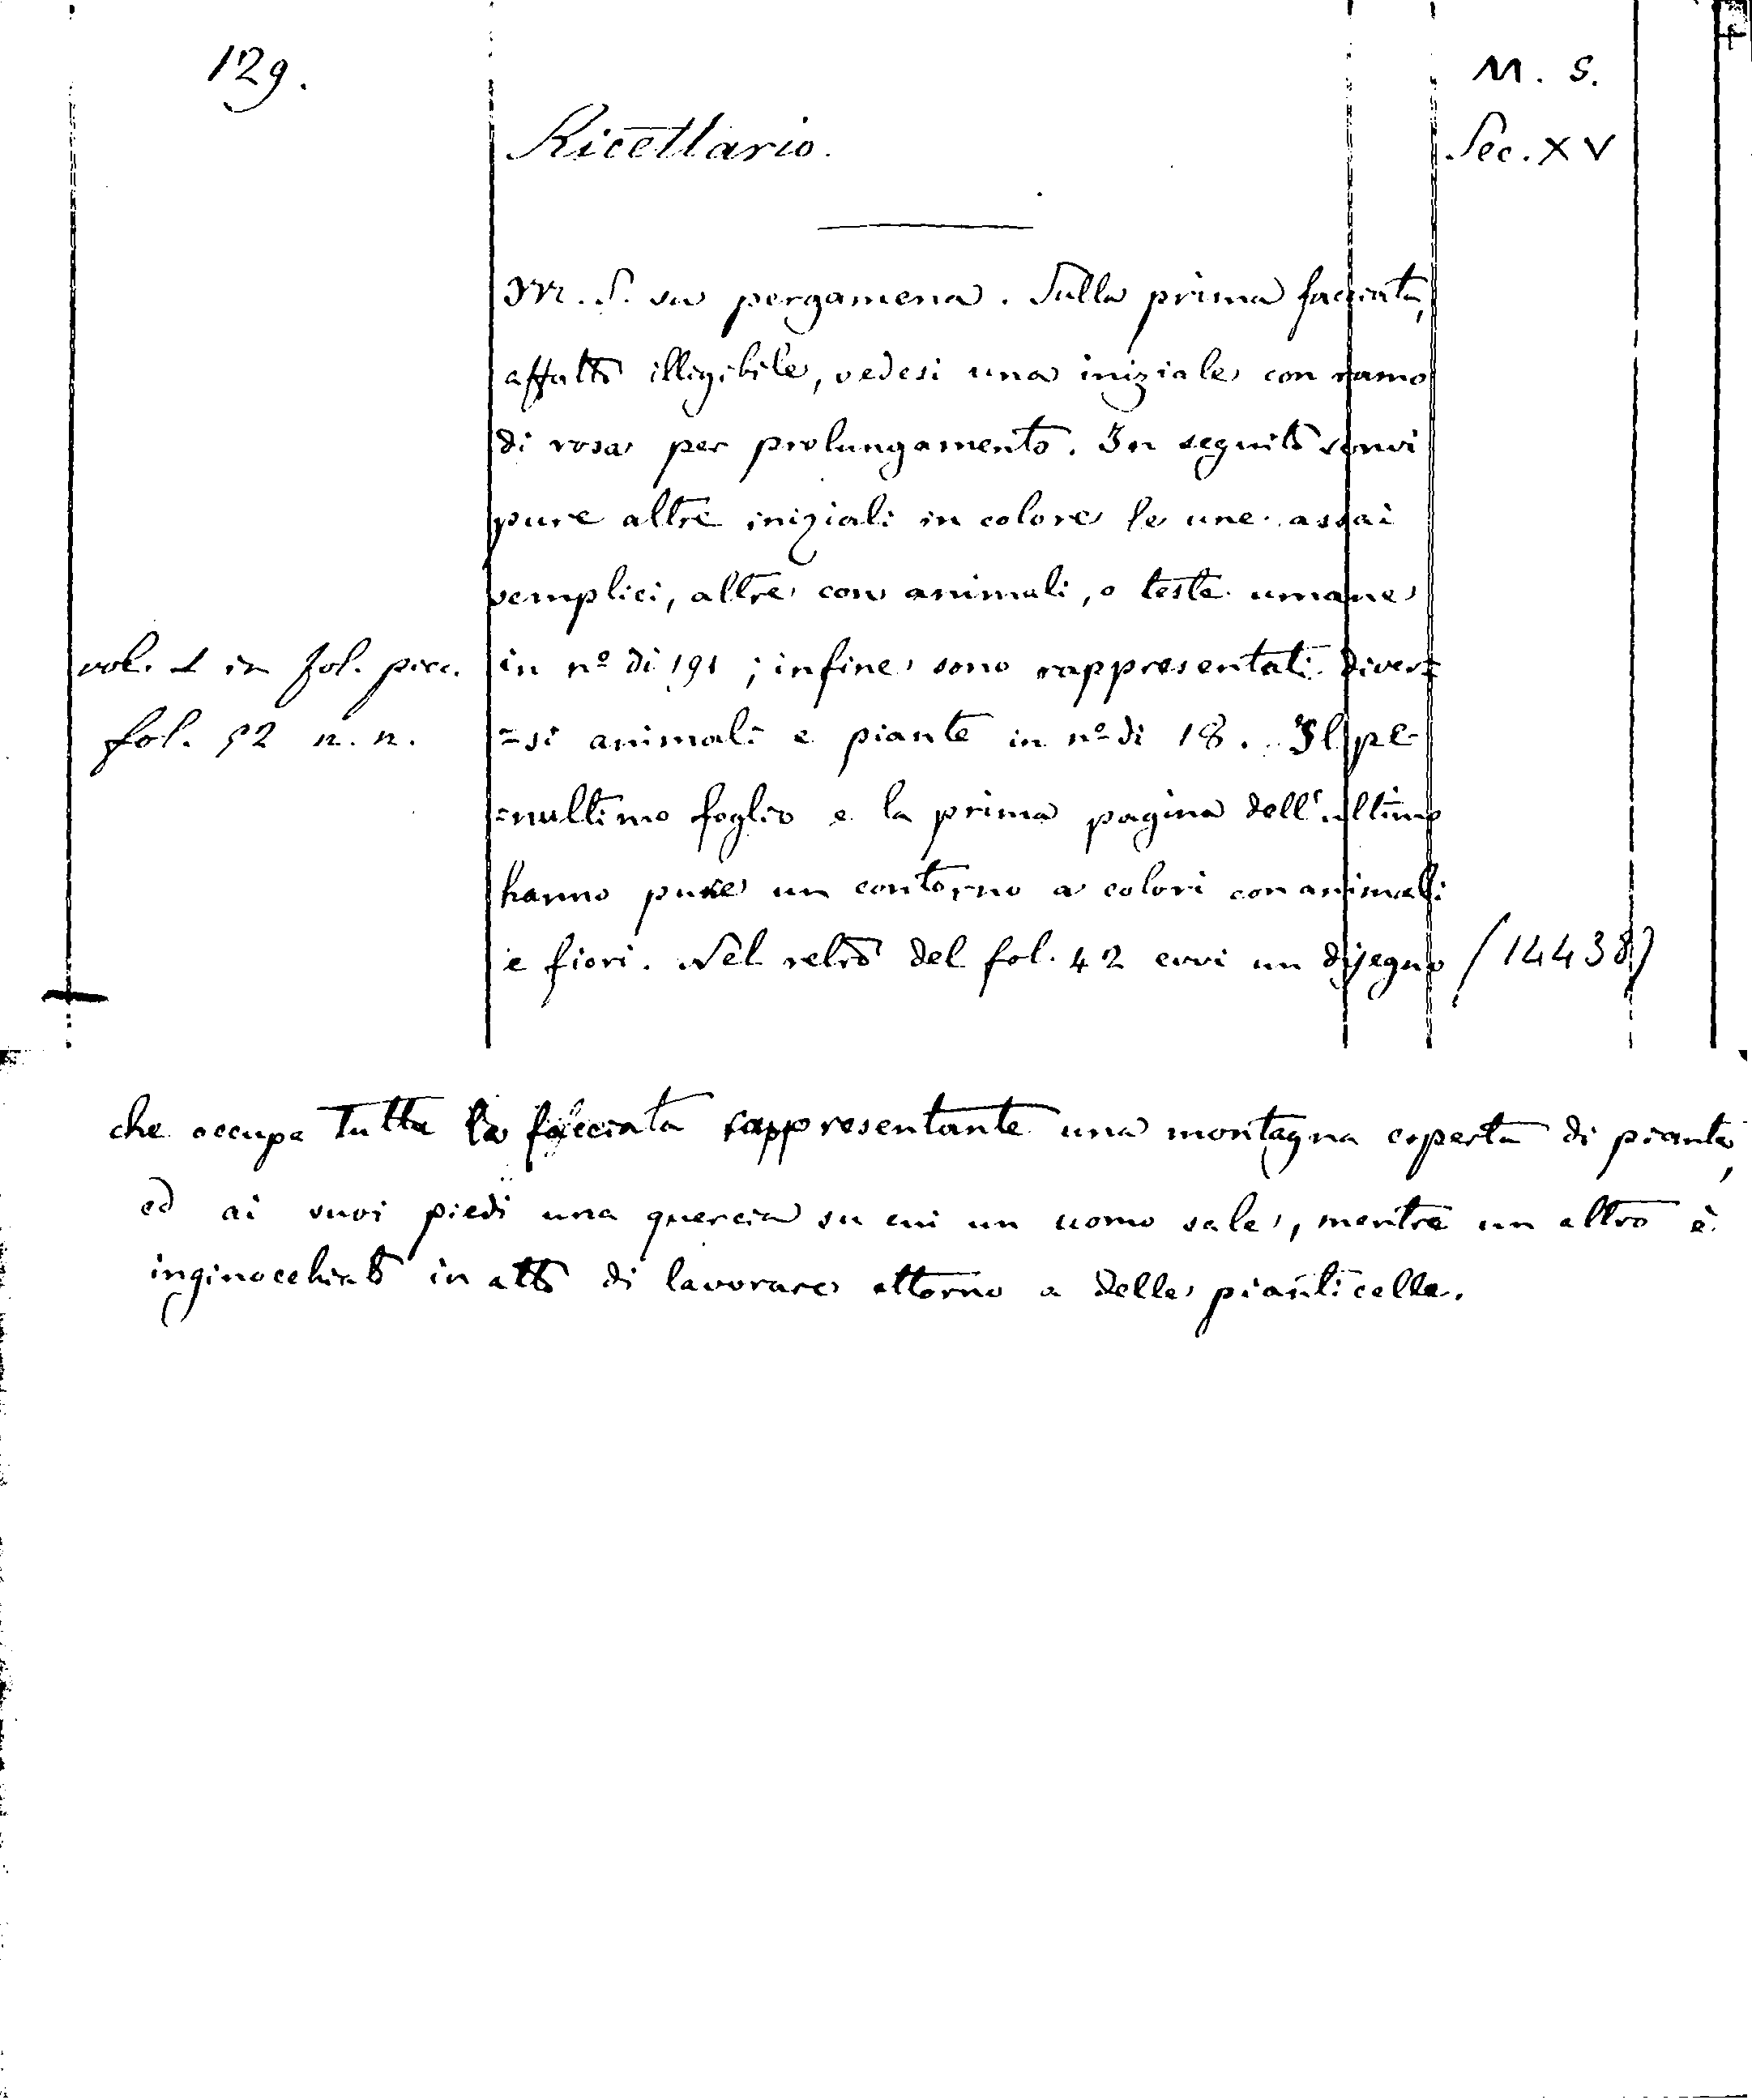 129.
M. S.
Ricettario.
Sec. XV
M. S. su pergamena. Sulla prima facciata,
affatto illigibile, vedesi una iniziale con ramo
di rosa per prolungamento. In seguito sonvi
pure altre iniziali in colore le une assai
semplici, altre con animali, o teste umane
vol. 1 in fol. picc.
in nº di 191; infine sono rappresentati diver=
fol. 52 n. n.
=si animali e piante in nº di 18. Il pe
=nultimo foglio e la prima pagina dell'ultimo
hanno pure un contorno a colori con animali
e fiori. Nel retro del fol. 42 evvi un disegno
(14438)
che occupa tutta la facciata rappresentante una montagna coperta di piante,
ed ai suoi piedi una quercia su cui un uomo sale, mentre un altro è
inginocchiato in atto di lavorare attorno a delle pianticelle.